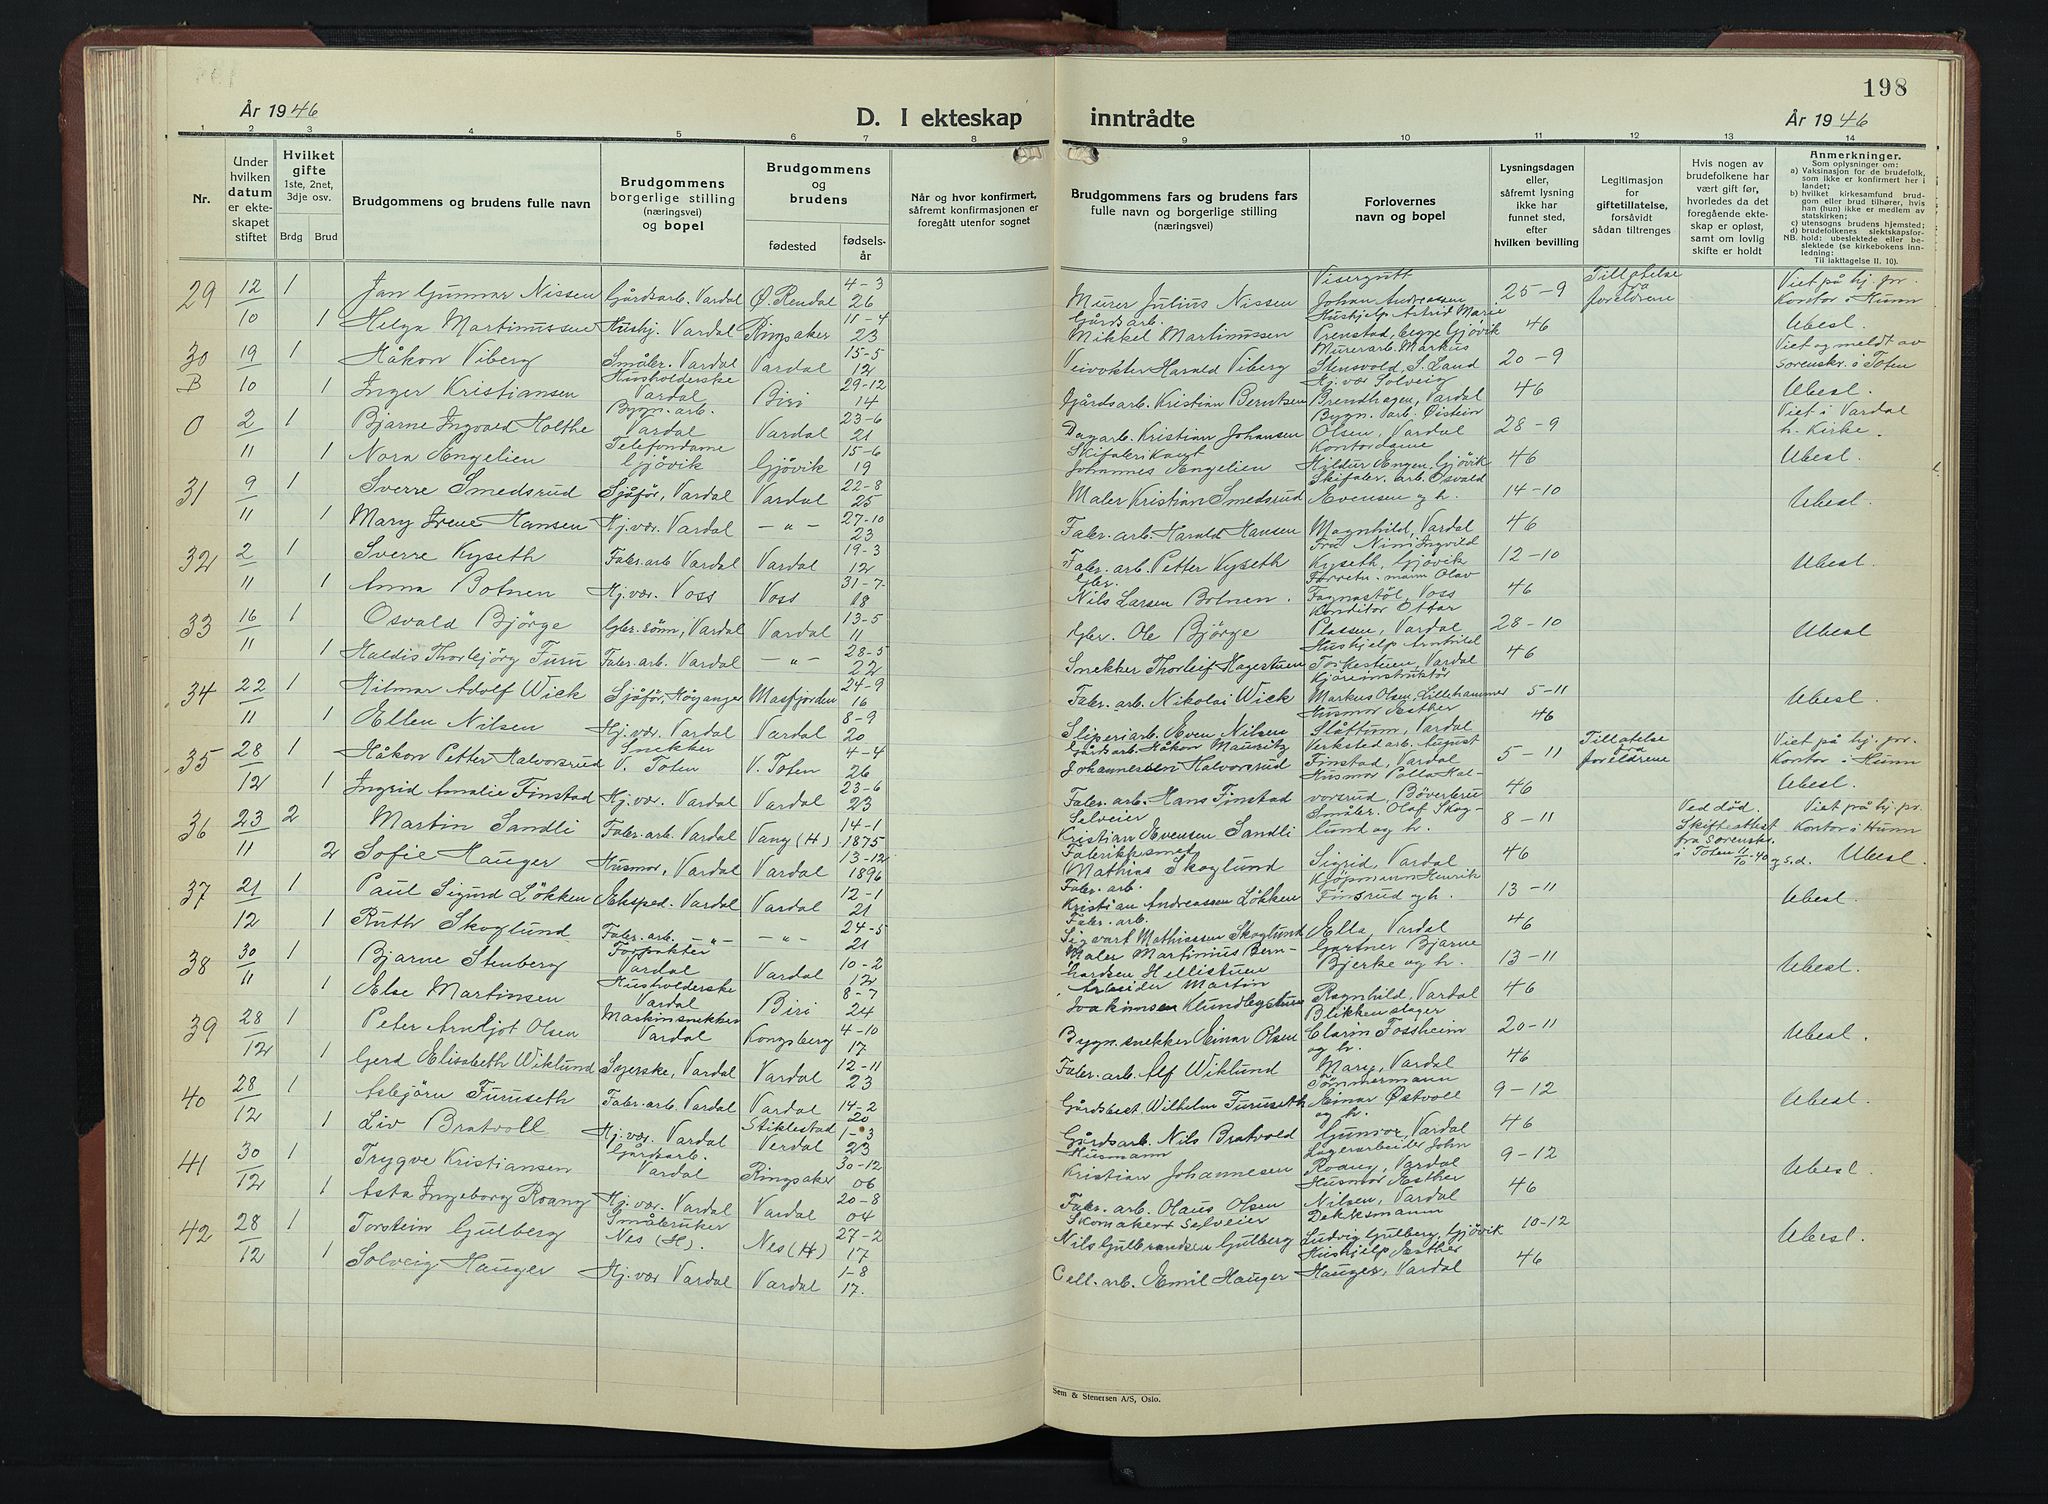 198
År 1946 D. I ekteskap inntrådte År 1946
1 2 3 4 5 6 7 8 9 10 11 12 13 14
Nr.
Under hvilken datum er ekteskapet stiftet
Hvilket gifte 1ste, 2net, 3dje osv.
Brdg Brud
Brudgommens og brudens fulle navn
Brudgommens borgerlige stilling (næringsvei) og bopel
Brudgommens og brudens
fødested fødselsår
Når og hvor konfirmert, såfremt konfirmasjonen er foregått utenfor sognet
Brudgommens fars og brudens fars fulle navn og borgerlige stilling (næringsvei)
Forlovernes navn og bopel
Lysningsdagen eller, såfremt lysning ikke har funnet sted, efter hvilken bevilling
Legitimasjon for giftetillatelse, forsåvidt sådan tiltrenges
Hvis nogen av brudefolkene har vært gift før, hvorledes da det foregående ekteskap er opløst, samt om lovlig skifte er holdt
Anmerkninger.
Som oplysninger om:
a) Vaksinasjon for de brudefolk, som ikke er konfirmert her i landet;
b) hvilket kirkesamfund brudgom eller brud tilhører, hvis han (hun) ikke er medlem av statskirken;
c) utensogns brudens hjemsted;
d) brudefolkenes slektskapsforhold: ubeslektede eller beslektede (se kirkebokens innledning:
NB. Til iakttagelse II. 10).
29 12/10 1 Jan Gunnar Nissen Gårdsarb. Vardal Ø. Rendal 4-3 26 Murer Julius Nissen Visergutt Johan Andreassen 25-9 46 Tillatelse fra foreldrene Viet på hj. pr. Kontor i Hunn
1 Helga Martinussen Hushj. Vardal Ringsaker 11-4 23 Gårdsarb. Mikkel Martinussen Hushjelp Astrid Marie Prenstad, begge Gjøvik Ubesl.
30 B 19/10 1 Håkon Viberg Småbr. Vardal Vardal 15-5 12 Veivokter Harald Viberg Murerarb. Markus Stensvold, S. Land 20-9 46 Viet og meldt av Sorenskr. i Toten
1 Inger Kristiansen Husholderske Vardal Biri 29-12 14 Gårdsarb. Kristian Berntsen Hj. vær Solveig Brendhagen, Vardal Ubesl.
0 2/11 1 Bjarne Ingvald Holthe Bygn. arb. Vardal Vardal 23-6 21 Dagarb. Kristian Johansen Bygn. arb. Øistein Olsen, Vardal 28-9 46 Viet i Vardal h. Kirke.
1 Nora Engelien Telefondame Gjøvik Gjøvik 15-6 19 Skifabrikant Johannes Engelien Kontordame Hildur Engen, Gjøvik Ubesl.
31 9/11 1 Sverre Smedsrud Sjåfør, Vardal Vardal 22-8 25 Maler Kristian Smedsrud Skifabr. arb. Osvald Evensen og h. 14-10 46 Ubesl.
1 Mary Irene Hansen Hj. vær. Vardal — " — 27-10 23 Fabr. arb. Harald Hansen Magnhild, Vardal
32 2/11 1 Sverre Kyseth Fabr. arb Vardal Vardal 19-3 12 Fabr. arb. Petter Kyseth Fru Nini Ingvild Kyseth, Gjøvik 12-10 46 Ubesl.
1 Anna Botnen Hj. vær. Voss Voss 31-7 18 Gbr. Nils Larsen Botnen. Forretn. mann Olav Fagnastøl, Voss
33 16/11 1 Osvald Bjørge Gbr. sønn, Vardal Vardal 13-5 11 Gbr. Ole Bjørge Konditor Ottar Plassen, Vardal 28-10 46 Ubesl
1 Haldis Thorbjörg Furu Fabr. arb. Vardal — " — 28-5 22 Snekker Thorleif Hagestuen Hushjelp Arnhild Torkestuen, Vardal
34 22/11 1 Hilmar Adolf Wick Sjåför, Höyanger Masfjorden 24-9 16 Fabr. arb. Nikolai Wick Kjöreinstruktör Markus Olsen, Lillehammer 5-11 46 Ubesl.
1 Ellen Nilsen Hj. vær. Vardal Vardal 8-9 20 Sliperiarb. Even Nilsen Husmor Esther Slåttum, Vardal
35 28/12 1 Håkon Petter Halvorsrud Snekker V. Toten V. Toten 4-4 26 Gårdsarb. Håkon Mauritz Johannessen Halvorsrud Verksted arb. August Finstad, Vardal 5-11 46 Tillatelse fra foreldrene Viet på hj. pr. Kontor i Hunn
1 Ingrid Amalie Finstad Hj. vær. Vardal Vardal 23-6 23 Fabr. arb. Hans Finstad Husmor Polla Halvorsrud, Böverbru Ubesl.
36 23/11 2 Martin Sandli Fabr. arb. Vardal Vang (H) 14-1 1875 Selveier Kristian Evensen Sandli Småbr. Olaf Skoglund og h. 8-11 46 Ved död. Skifteattest fra Sorenskr. i Toten 11/10-40 Viet på hj. pr. Kontor i Hunn
2 Sofie Hauger Husmor, Vardal Vardal 13-12 1896 Fabrikksmed Mathias Skoglund Sigrid, Vardal og s.d. Ubesl.
37 21/12 1 Paul Sigurd Lökken Eksped. Vardal Vardal 12-1 21 Fabr. arb. Kristian Andreassen Lökken Kjöpmann Henrik Finsrud og h. 13-11 46 Ubesl.
1 Ruth Skoglund Fabr. arb. — " — — " — 24-5 21 Fabr. arb. Sigvart Mathiassen Skoglund Ella, Vardal
38 30/11 1 Bjarne Stenberg Forpakter Vardal Vardal 10-2 12 Maler Martinius Berntsen Hellistuen Gartner Bjarne Bjerke og h. 13-11 46 Ubesl.
1 Else Martinsen Husholderske Vardal Biri 8-7 24 Arbeider Martin Joakimsen Klundbystuen Ragnhild, Vardal
39 28/12 1 Peter Arnljot Olsen Maskinsnekker Vardal Kongsberg 4-10 17 Bygn. snekker Einar Olsen Blikkenslager Clarin Fossheim og h. 20-11 46 Ubesl.
1 Gerd Elisabeth Wiklund Syerske, Vardal Vardal 12-11 23 Fabr. arb. Alf Wiklund Mary, Vardal
40 28/12 1 Asbjörn Furuseth Fabr. arb. Vardal Vardal 14-2 20 Gårdsbest. Wilhelm Furuseth Tömmermann Einar Østvoll og h. 9-12 46 Ubesl.
1 Liv Bratvoll Hj. vær. Vardal Stiklestad Verdal 1-3 23 Gårdsarb. Nils Bratvold Gunvor, Vardal
41 30/12 1 Trygve Kristiansen Gårdsarb. Vardal Ringsaker 30-12 06 Husmann Kristian Johannesen Lagerarbeider John Roang, Vardal 9-12 46 Ubesl.
1 Asta Ingeborg Roang Hj. vær. Vardal Vardal 20-8 04 Fabr. arb. Olaus Olsen Husmor Esther Nilsen, Vardal
42 28/12 1 Torstein Gulberg Småbruker Nes (H). Nes (H) 27-2 17 Skomaker Selveier Nils Gulbrandsen Gulberg Dekksmann Ludvig Gulberg, Gjövik 10-12 46 Ubesl.
1 Solveig Hauger Hj. vær Vardal Vardal 1-8 17. Cell. arb. Emil Hauger Hushjelp Esther Hauger, Vardal
Sem & Stenersen A/S, Oslo.